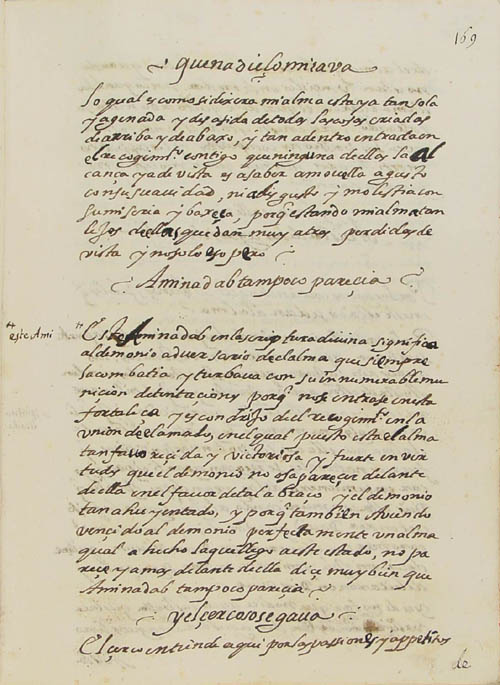 169
que nadie lo mirava
lo qual es como si dixera mi alma esta ya tan sola
y agenada y desasida de todas las cosas criadas
de arriba y de abaxo, y tan adentro entrada en
el recogimtº. contigo que ninguna dellas la al
cança ya de vista es a saber a movella a gusto
con su suavidad, ni a disgusto y molestia con
su miseria y baxeça, porq̃ estando mi alma tan
lejos dellas quedan muy atras perdidas de
vista y no solo eso pero
Aminadab tampoco pareçia
este Ami
Este Aminadab en la scriptura divina significa
al demonio adversario de el alma que siempre
la combatia y turbava con su innumerable mu
niçion de tentaciones porq̃ no se entrase en esta
fortaleça y escondrijo de el recogimtº. en la
union de el amado, en el qual puesto esta el alma
tan favoreçida y victoriosa y fuerte en vir
tudes que el demonio no osa pareçer delante
de ella en el favor de tal abraço y el demonio
tan ahuyentado, y porq̃ tambien aviendo
vençido al demonio perfectamente un alma
qual a hecho la que llego a este estado, no pa
reçe ya mas delante de ella diçe muy bien que
Aminadab tampoco pareçia
y el çerco sosegava
El çerco entiende aqui por las passiones y appetitos
de